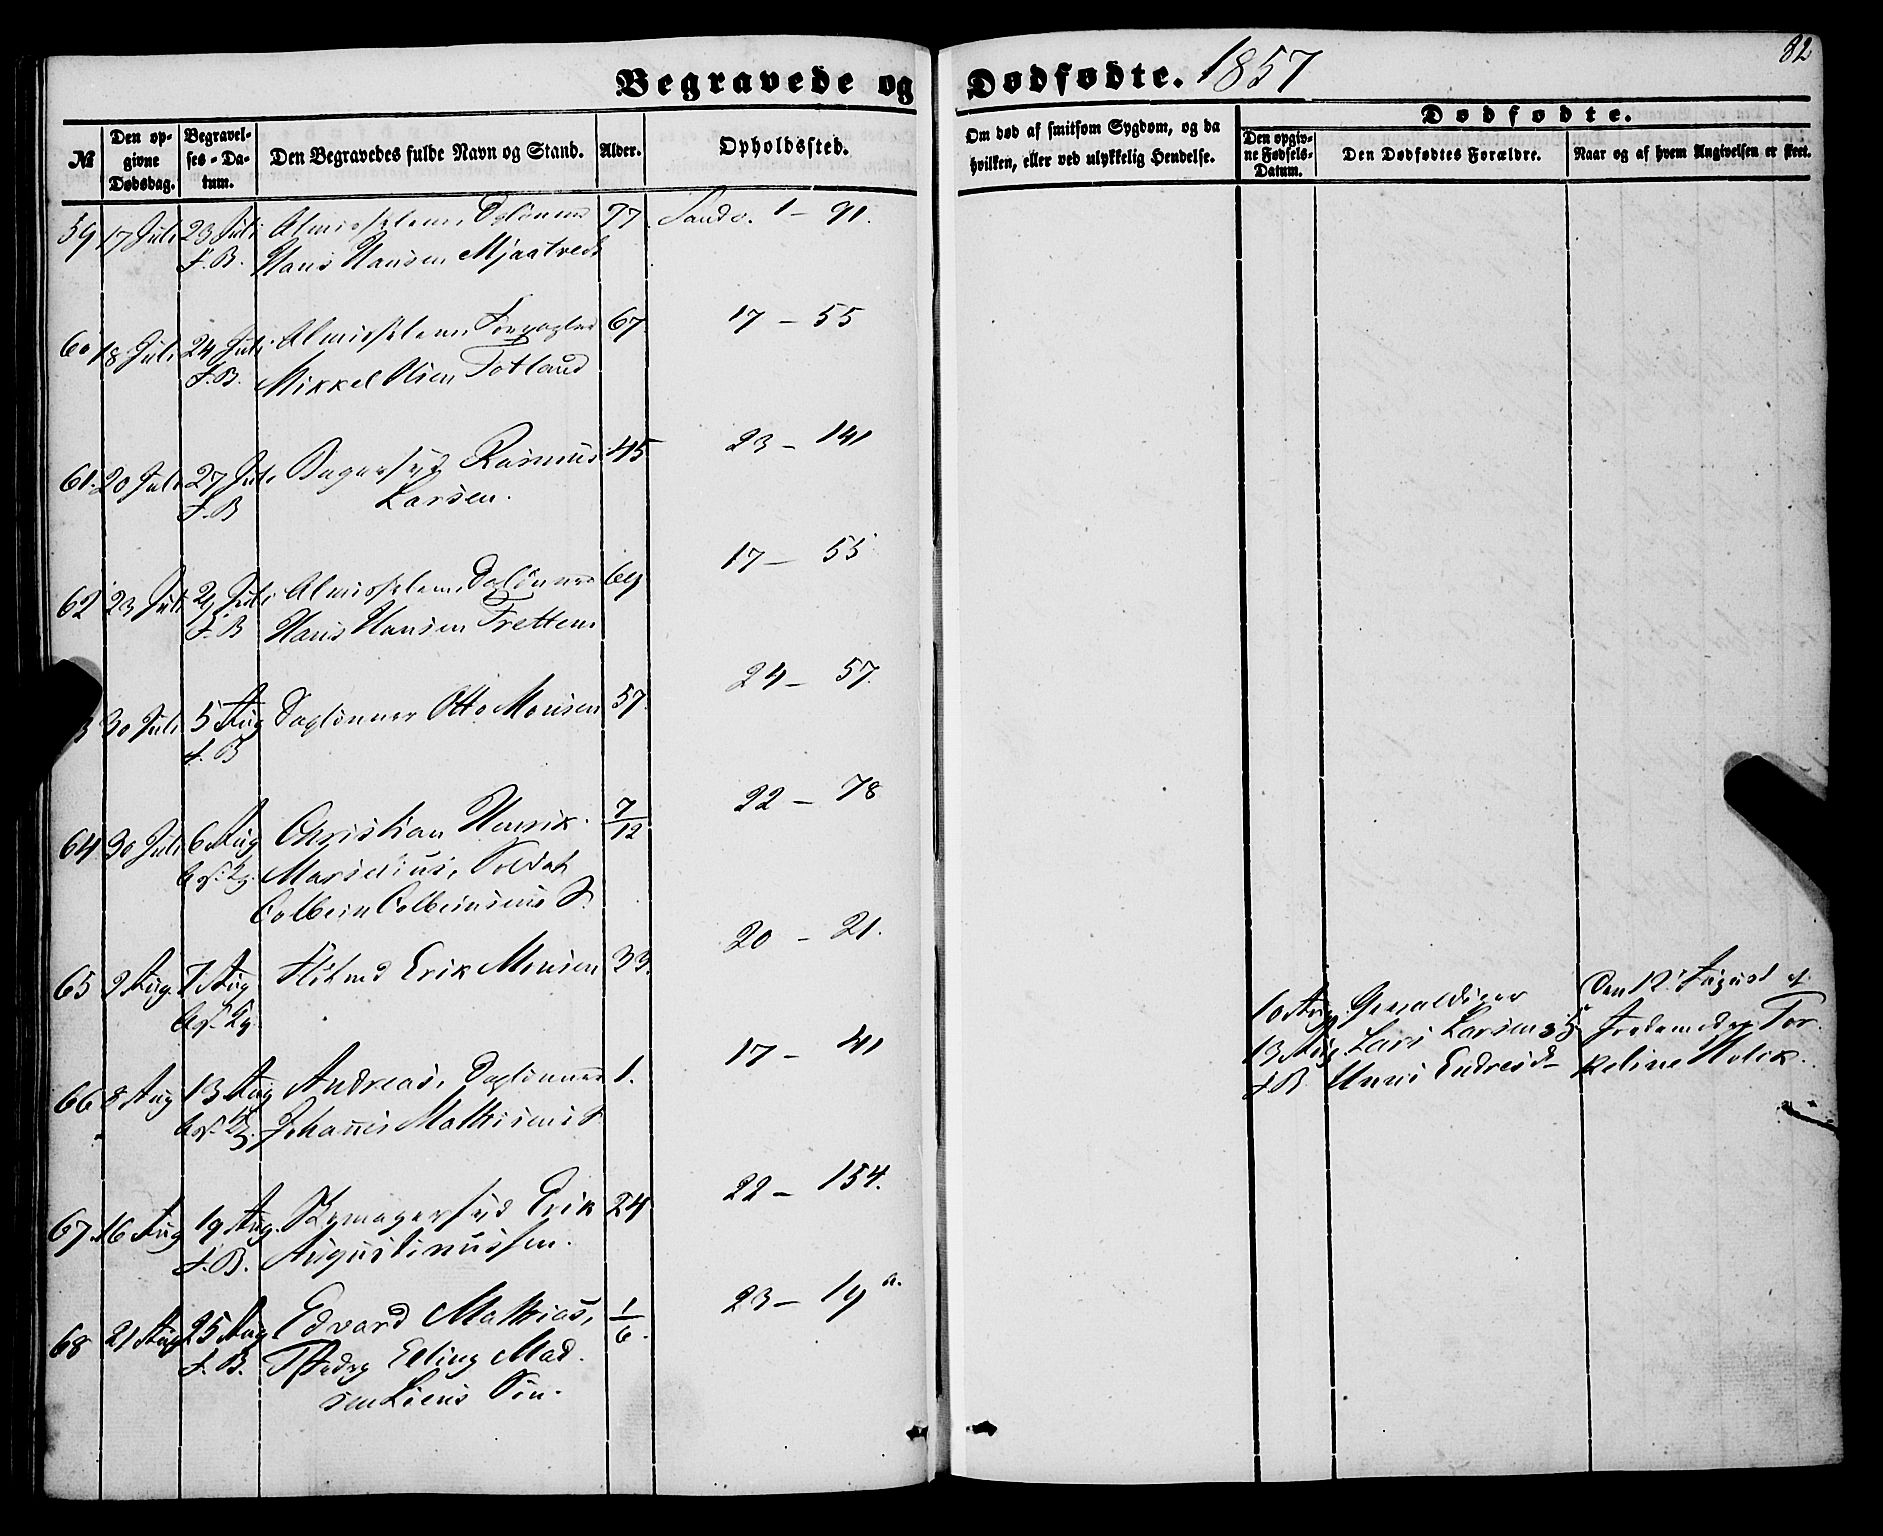 82
Begravede og Dødfødte. 1857
№
Den opgivne Dødsdag.
Begravelses-Datum.
Den Begravedes fulde Navn og Stand.
Alder.
Opholdssted.
Om død af smitsom Sygdom, og da hvilken, eller ved ulykkelig Hendelse.
Dødfødte.
Den opgivne Fødsels-Datum.
Den Dødfødtes Forældre.
Naar og af hvem Angivelsen er skeet.
59 17 Juli 23 Juli Almisselem, Daglønner 77. Sandv. 1 - 91.
F. B. Hans Hansen Mjaatvedt
60 18 Juli 24 Juli Almisselem 67. 17 - 55
F. B. Mikkel Olsen Totland
61. 20 Juli 27 Juli Bagersvd Rasmus 45 23 - 141
F. B Larsen.
62 23 Juli Juli Almisselem, Daglønner 69. 17 - 55
F. B Hans Hansen Fretten
3 30 Juli 5 Aug Daglønner Otto Monsen 57. 24 - 57.
F. B
64 30 Juli 6 Aug Christian Henrik 7/12 22 - 78
Marselius, Soldat
Colbein Colbeinsens S.
65 2 Aug. 7 Aug Erik Monsen 33. 20 - 21.
66 8 Aug 13 Aug Andreas, Daglønner 1. 17 - 41
Johannes Mathisens S.
67. 16 Aug 19 Aug. Skomagersvd Erik 24 22 - 154.
F. B. Augustinussen.
68 21 Aug 25 Aug Edvard Mathias, 1/6. 23 - 19 a.
F. B. Elling Mad-
sen Liens Søn.
10 Aug. Den 12 August af
13 Aug. Lars Larsen Jordemoder Tor-
F. B Unni Endresd keline Holck.